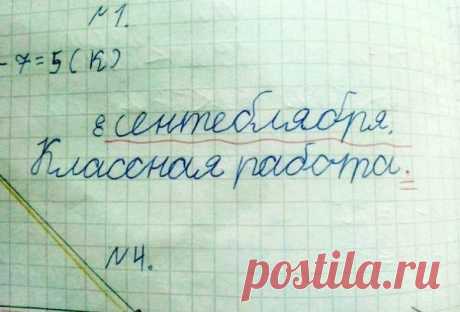 №1.
-7=5(К)
8 сентеблября.
Классная работа.
№4.
postila.ru